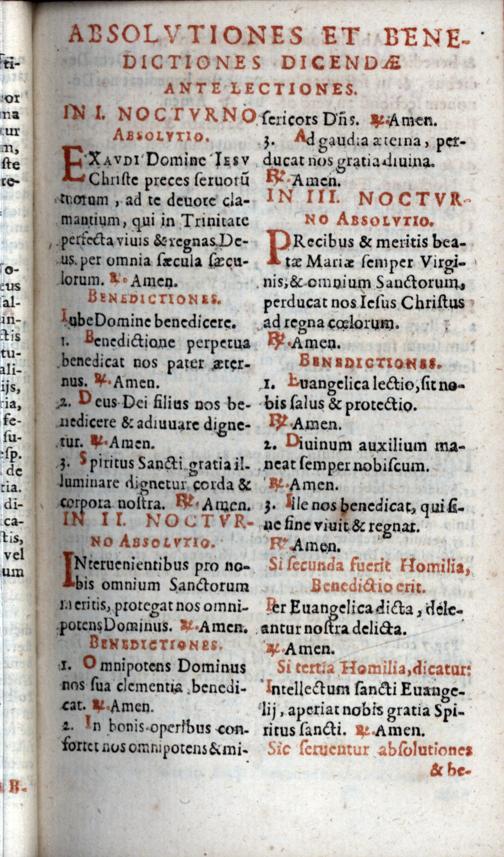 ABSOLVTIONES ET BENE-
DICTIONES DICENDÆ
ANTE LECTIONES.
IN I. NOCTVRNO
ABSOLVTIO.
EXAVDI Domine IESV
Christe preces seruorũ
tuorum, ad te deuote cla-
mantium, qui in Trinitate
perfecta viuis & regnas De-
us, per omnia sæcula sæcu-
lorum. ℟. Amen.
BENEDICTIONES.
Iube Domine benedicere.
1. Benedictione perpetua
benedicat nos pater æter-
nus. ℟. Amen.
2. Deus Dei filius nos be-
nedicere & adiuuare digne-
tur. ℟. Amen.
3. Spiritus Sancti gratia il-
luminare dignetur corda &
corpora nostra. ℟. Amen.
IN II. NOCTVR-
NO ABSOLVTIO.
INteruenientibus pro no-
bis omnium Sanctorum
meritis, protegat nos omni-
potens Dominus. ℟. Amen.
BENEDICTIONES.
1. Omnipotens Dominus
nos sua clementia benedi-
cat. ℟. Amen.
2. In bonis operibus con-
fortet nos omnipotens & mi-
sericors Dñs. ℟. Amen.
3. Ad gaudia æterna, per-
ducat nos gratia diuina.
℟. Amen.
IN III. NOCTVR-
NO ABSOLVTIO.
PRecibus & meritis bea-
tæ Mariæ semper Virgi-
nis, & omnium Sanctorum,
perducat nos Iesus Christus
ad regna cœlorum.
℟. Amen.
BENEDICTIONES.
1. Euangelica lectio, sit no-
bis salus & protectio.
℟. Amen.
2. Diuinum auxilium ma-
neat semper nobiscum.
℟. Amen.
3. Ille nos benedicat, qui si-
ne fine viuit & regnat.
℟. Amen.
Si secunda fuerit Homilia,
Benedictio erit.
Per Euangelica dicta, dele-
antur nostra delicta.
℟. Amen.
Si tertia Homilia, dicatur:
Intellectum sancti Euange-
lij, aperiat nobis gratia Spi-
ritus sancti. ℟. Amen.
Sic seruentur absolutiones
& be-